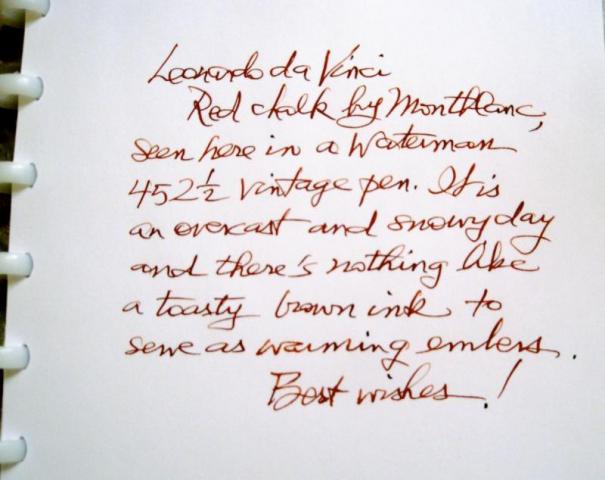 Leonardo da Vinci
Red chalk by Montblanc,
seen here in a Waterman
452½ vintage pen. It is
an overcast and snowy day
and there's nothing like
a toasty brown ink to
serve as warming embers.
Best wishes!